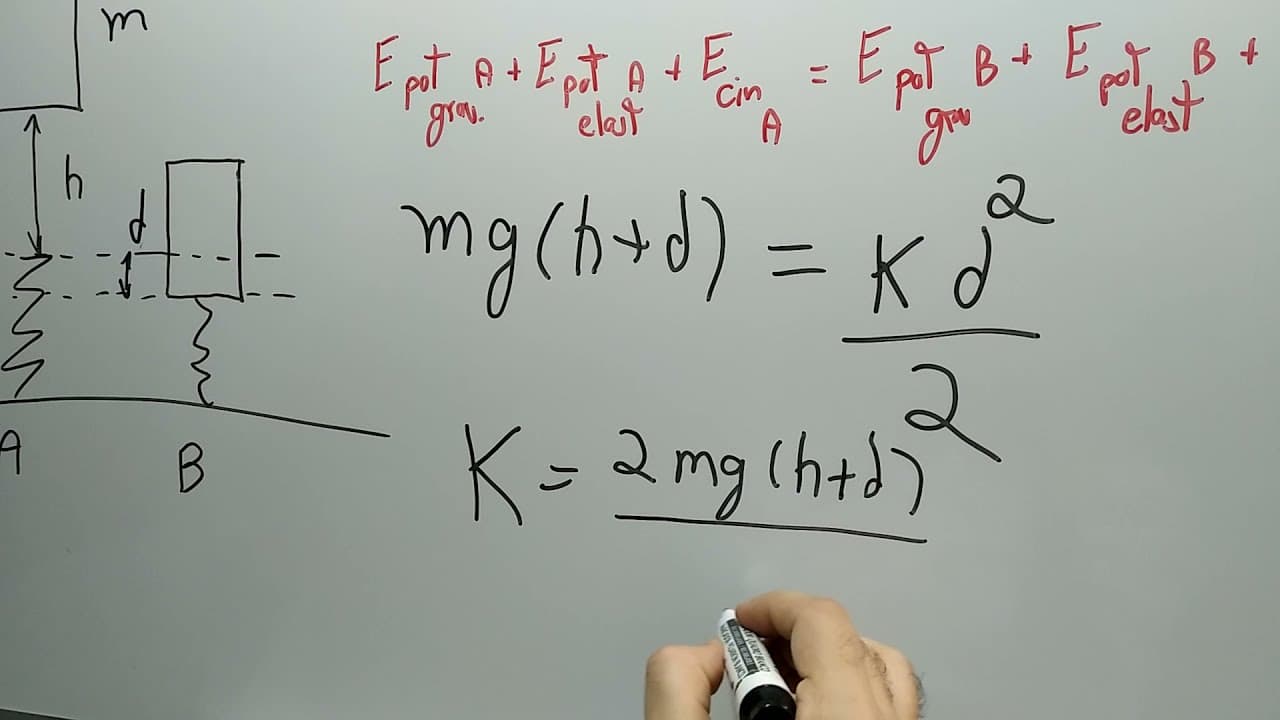 m
E pot grav. A + E pot elast A + E cin A = E pot grav B + E pot elast B +
h
d
mg(h+d) = K d²
2
K = 2mg(h+d)
A
B